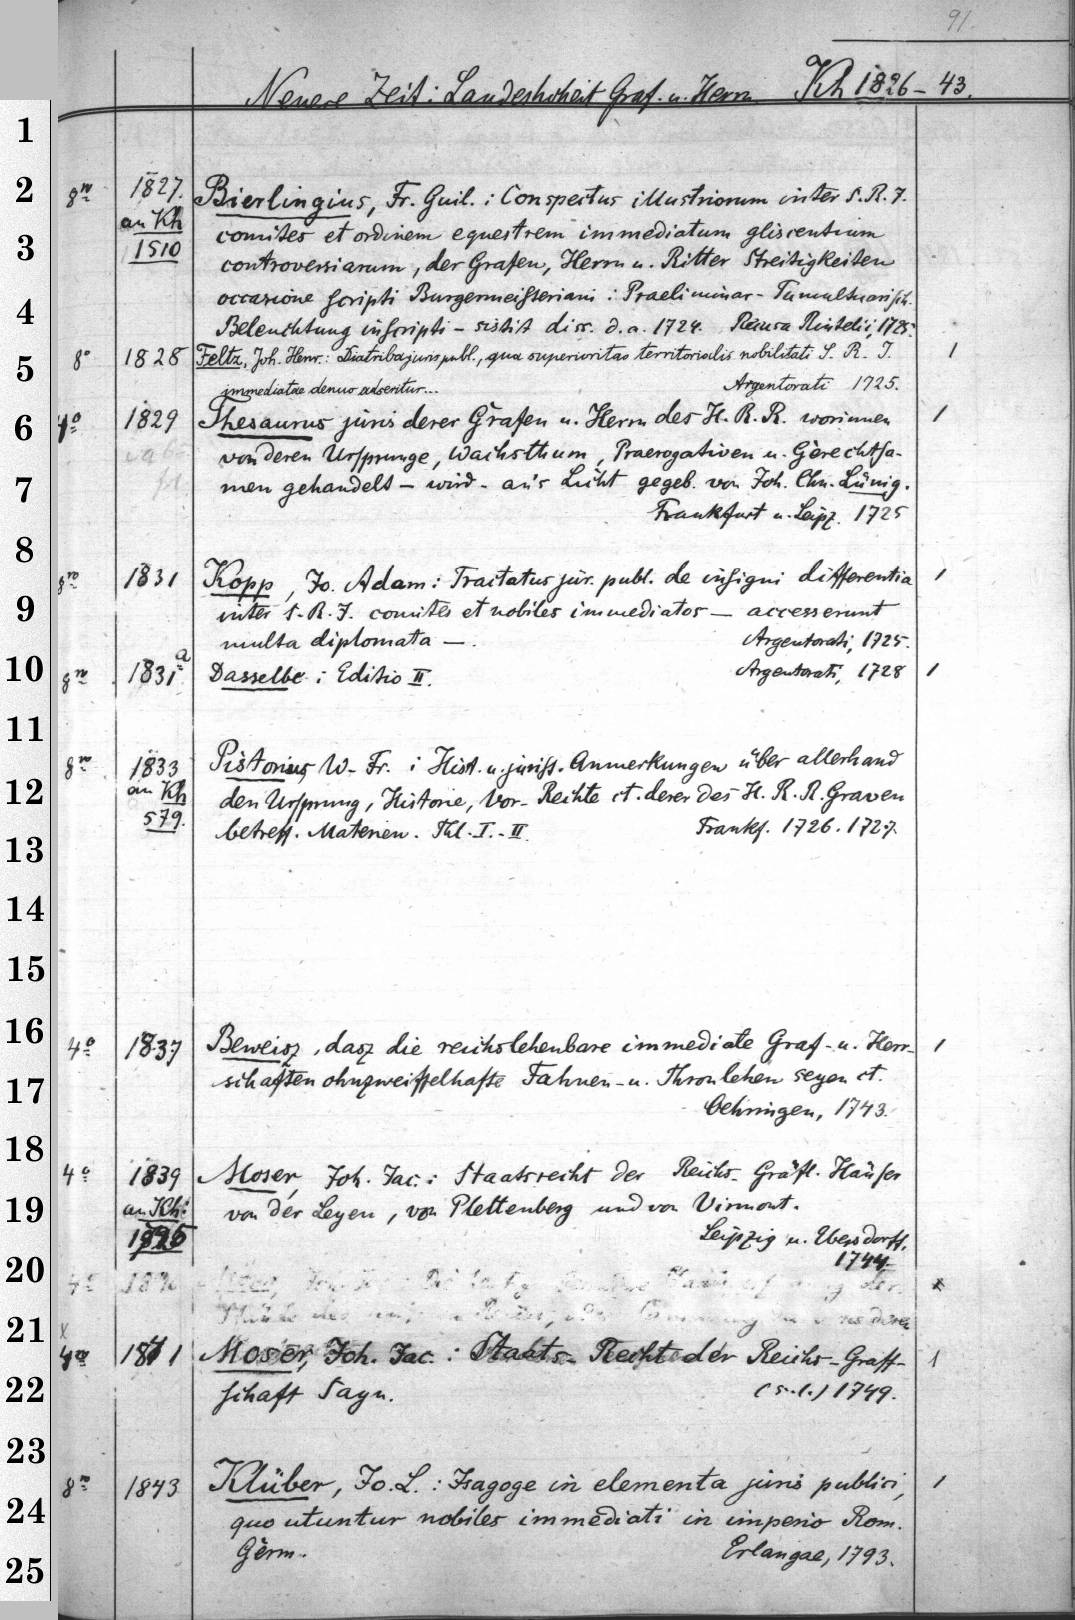 91.
Neuere Zeit: Landeshoheit Graf. u. Herrn Kh 1826-43.
1
2 8° 1827. Bierlingius, Fr. Guil.: Conspectus illustriorum inter S. R. J.
an Kh comites et ordinem equestrem immediatum gliscentium
3 1510 controversiarum, der Grafen, Herrn u. Ritter Streitigkeiten
4 occasione scripti Burgermeisteriani: Praeliminar-Tumultuarisch.
Beleuchtung inscripti - sistit diss. d. a. 1724. Rinteli, 1725.
5 8° 1828 Feltz, Joh. Henr.: Diatriba juris publ., qua superioritas territorialis nobilitati S. R. J. 1
immediatae denuo adseritur... Argentorati 1725.
6 4° 1829 Thesaurus juris derer Grafen u. Herrn des H. R. R. worinnen 1
von deren Ursprunge, Wachsthum, Praerogativen u. Gerechtsa-
7 men gehandelt - wird - an's Licht gegeb. von Joh. Chn. Lünig.
Frankfurt u. Leipz. 1725
8
8° 1831 Kopp, Jo. Adam: Tractatus jur. publ. de insigni differentia 1
9 inter S. R. J. comites et nobiles immediatos - accesserunt
multa diplomata -. Argentorati, 1725.
10 8° 1831a Dasselbe: Editio II. Argentorati, 1728 1
11
8° 1833 Pistorius, W. Fr.: Hist. u. jurist. Anmerkungen über allerhand
12 an Kh den Ursprung, Historie, Vor-Rechte ct. derer des H. R. R. Graven
579. betreff. Materien. Thl. I.-II. Frankf. 1726. 1727.
13
14
15
16 4° 1837 Beweisz, dasz die reichslehenbare immediate Graf- u. Herr- 1
17 schafften ohnzweiffelhafte Fahnen- u. Thronlehen seyen ct.
Oehringen, 1743.
18
4° 1839 Moser, Joh. Jac.: Staatsrecht der Reichs-Gräfl. Häuser
19 an Kh: von der Leyen, von Plettenberg und von Virmont.
Leipzig u. Ebersdorff,
1744.
20 4°
21 x
4° 1841 Moser, Joh. Jac.: Staats-Recht der Reichs-Graff- 1
22 schaft Sayn. (s. l.) 1749.
23
8° 1843 Klüber, Jo. L.: Isagoge in elementa juris publici, 1
24 quo utuntur nobiles immediati in imperio Rom.
Germ. Erlangae, 1793.
25